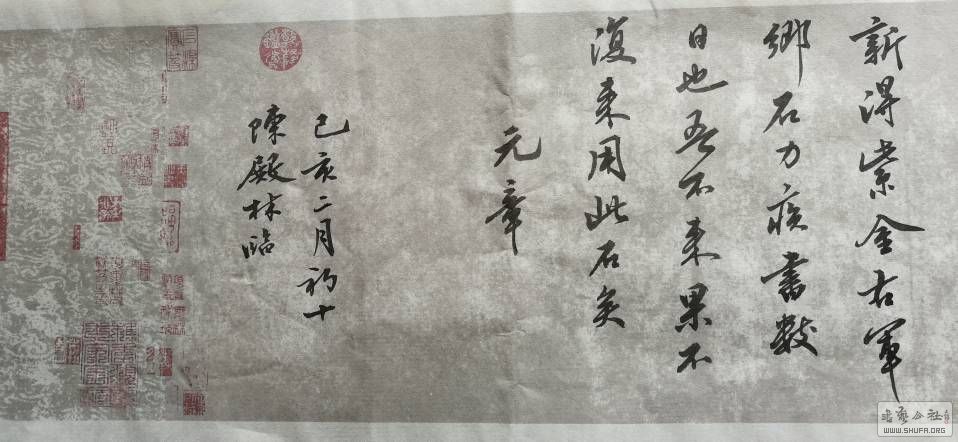 新得紫金右軍
鄉石力疾書數
日也吾不來果不
復來用此石矣
元章
己亥二月初十
陳殿林臨
书艺公社
WWW.SHUFA.ORG